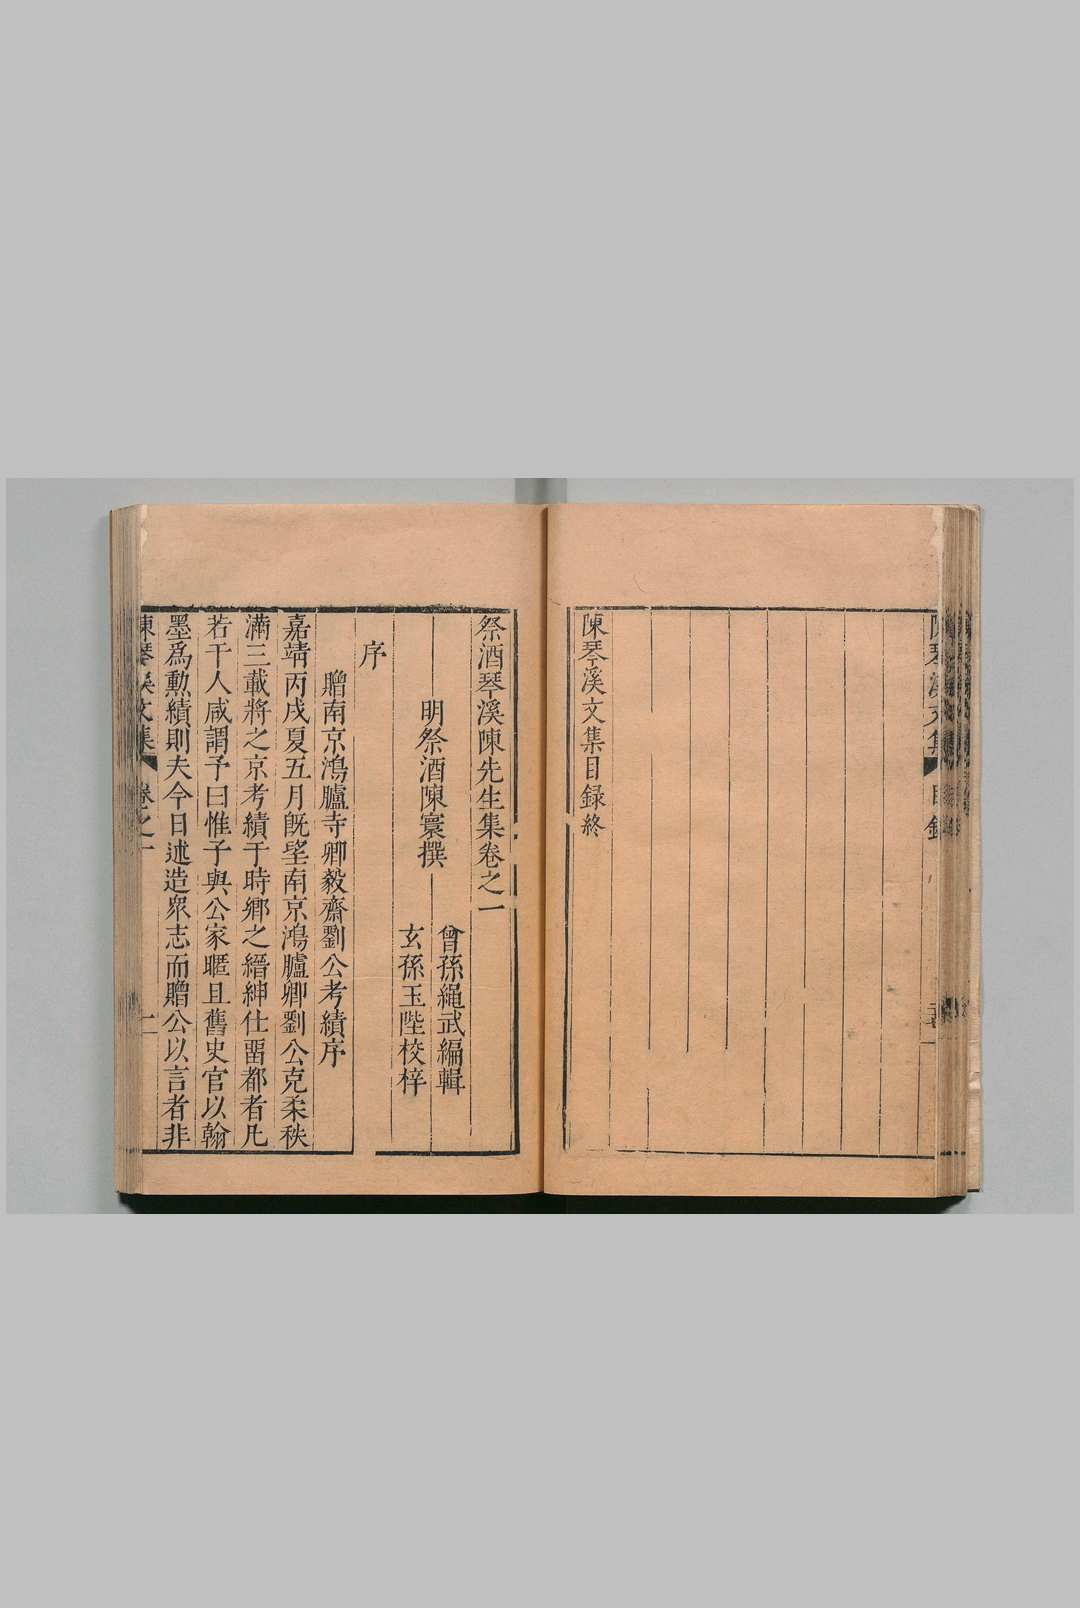 陳琴溪文集目録終
祭酒琴溪陳先生集卷之一
明祭酒陳寰撰
曾孫繩武編輯
玄孫玉陛校梓
序
贈南京鴻臚寺卿毅齋劉公考績序
嘉靖丙戌夏五月既望南京鴻臚卿劉公克柔秩
滿三載將之京考績于時鄉之縉紳仕畱都者凡
若干人咸謂予曰惟子與公家暱且舊史官以翰
墨爲勲績則夫今日述造衆志而贈公以言者非
陳琴溪文集 卷之一